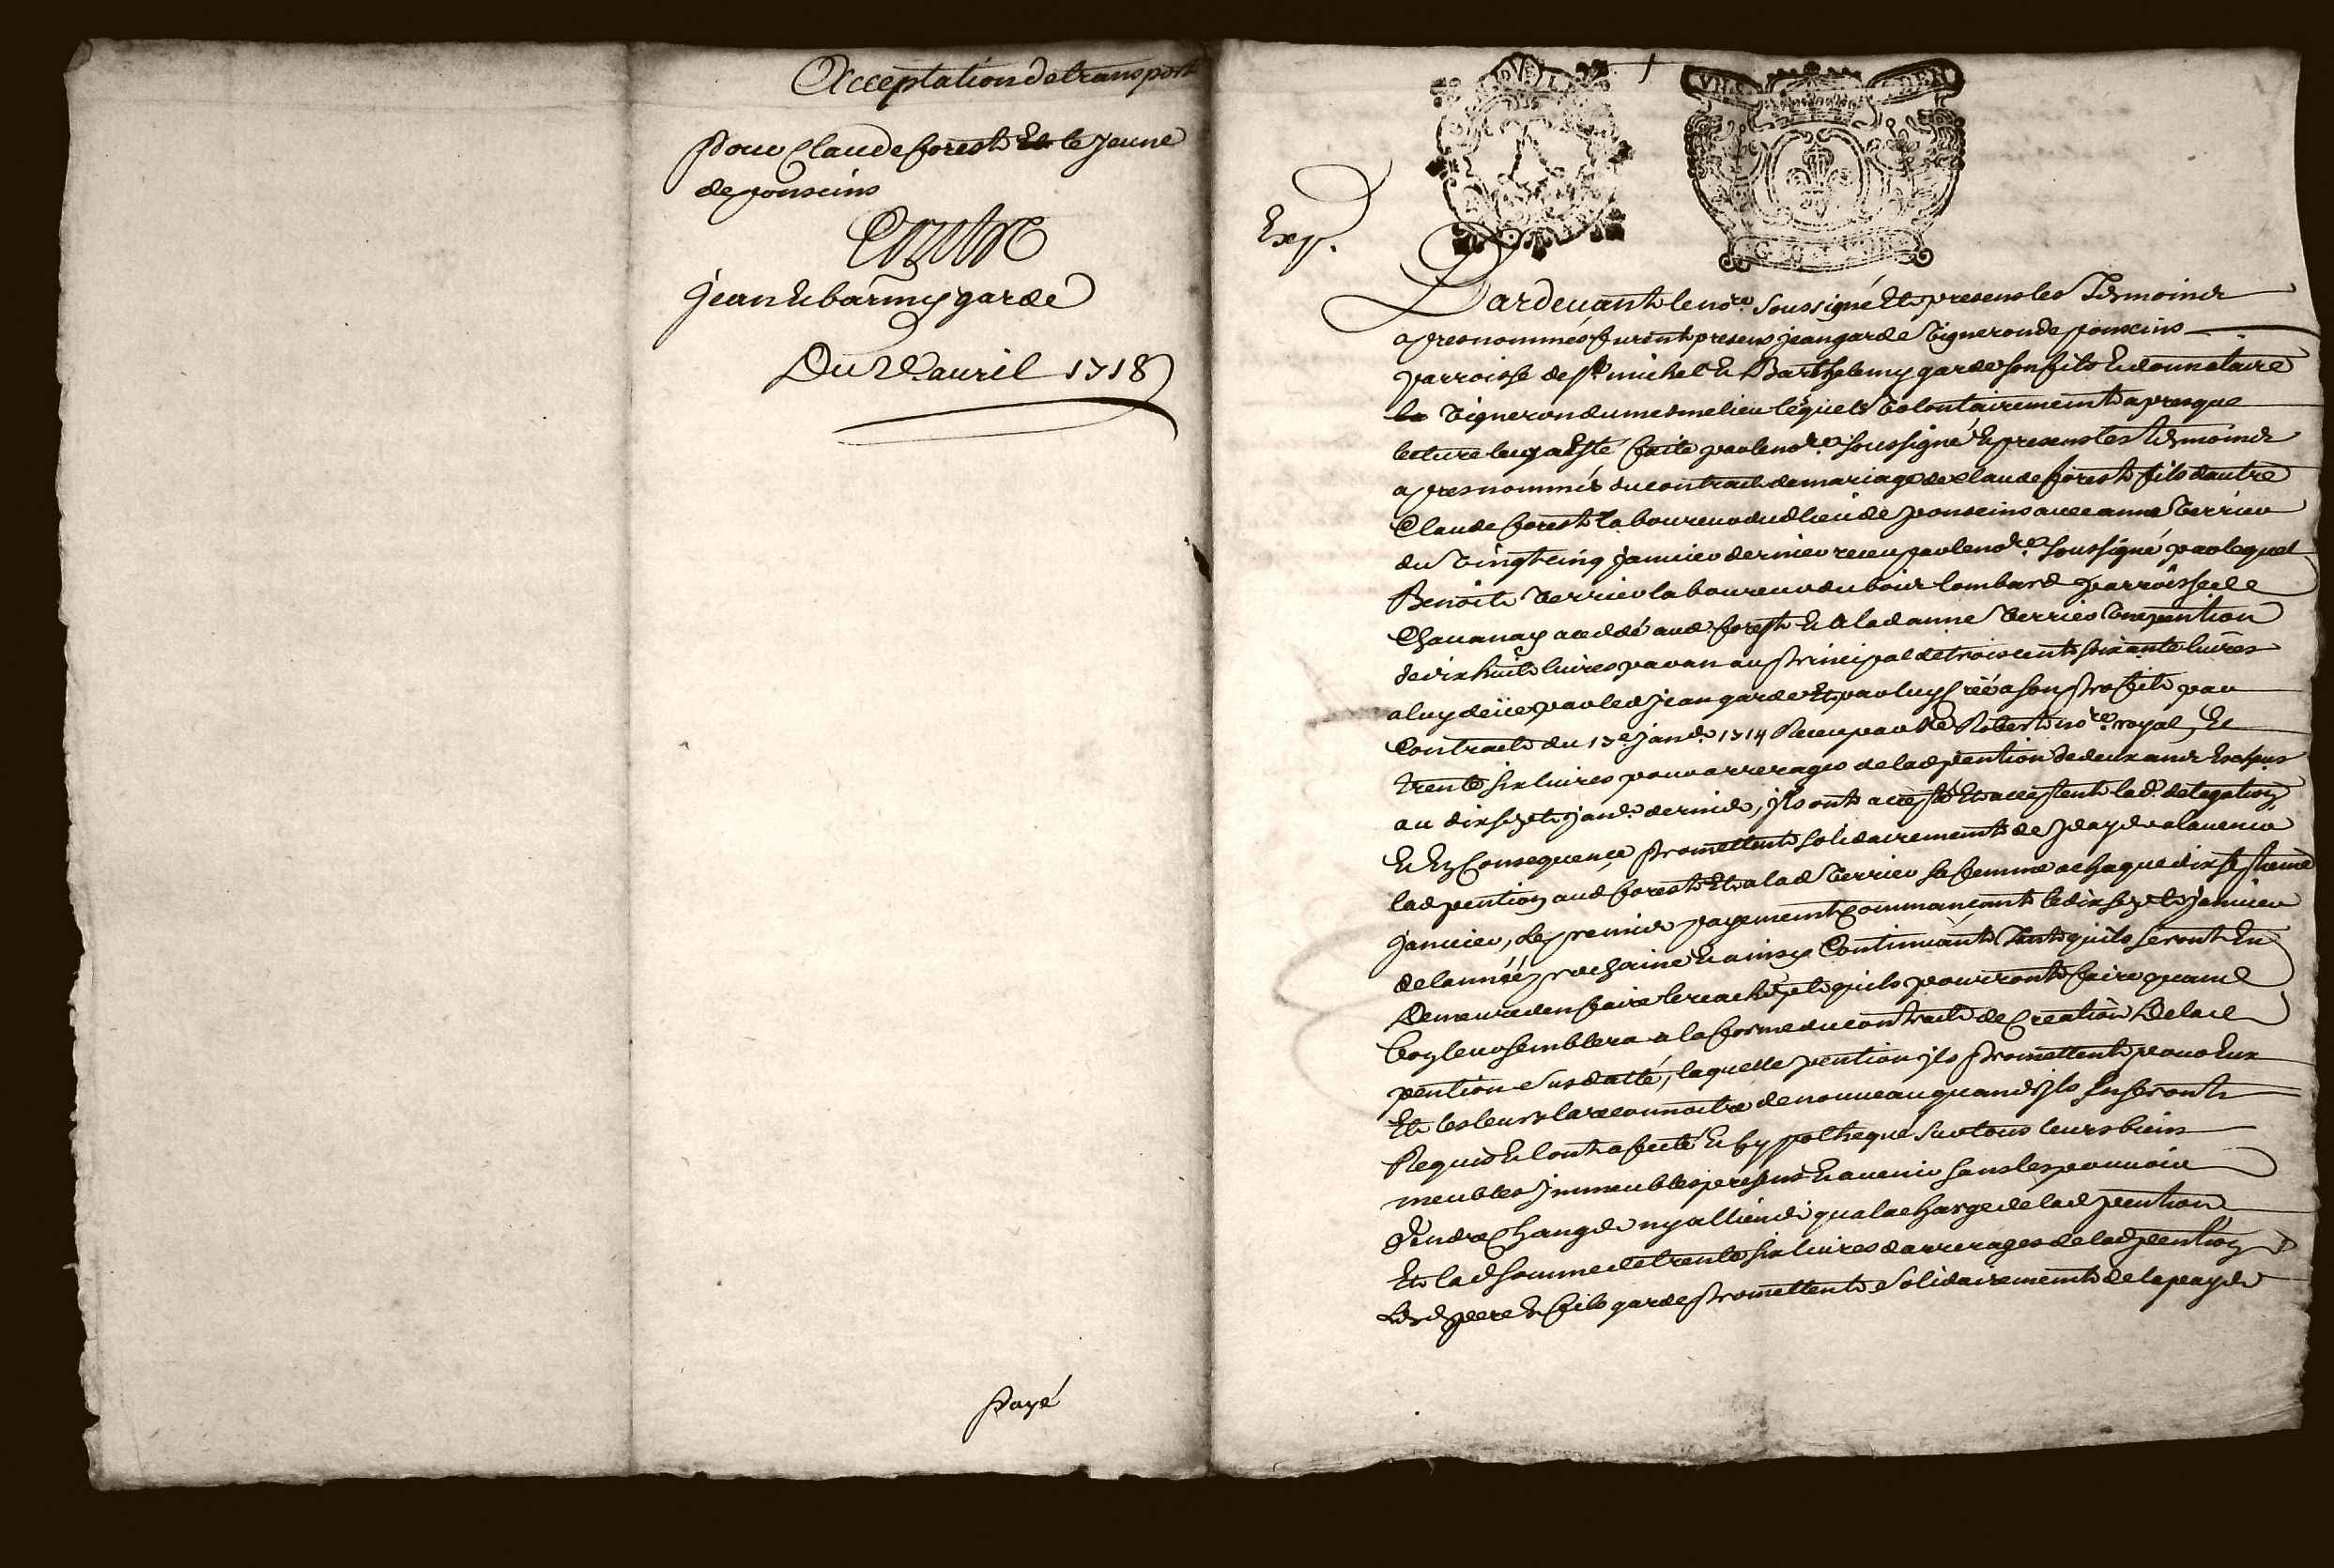 Acceptation de transport
Pour Claude forest Et le Jeune
de ponseins
Contre
jean & barmy garde
Du 2e auril 1718
payé
Exp.
Pardeuant le nore. Soussigné Et presens les Tesmoins
apres nommés furent presens jean garde Vigneron de ponseins
parroisse de st michel & Barthelemy garde son fils & donnataire
Vigneron du mesme lieu lequels Volontairement apres que
lecture leur a Esté faite par le nore. soussigné & presens les tesmoins
apres nommés du contract de mariage de claude forest fils d'autre
Claude forest laboureur dud lieu de ponseins auec anne Verrier
du Vingt cinq januier dernier receu par le nore. soussigné par lequel
Benoit Verrier laboureur du bois lombard parroisse de
Chauanay a cedé aud forest & a lad anne Verrier Une pention
de dix huit liures par an au principal de trois cents soixante liures
a luy deüe par led jean garde Et par luy créé a son profit par
Contract du 17e janr. 1714 Receu par Me Robert nore. royal, &
trente six liures pour arrerages de lad pention de deux ans Escheus
au dix sept janr. dernier, ils ont accepté Et acceptent lad. delegation
& En Consequence promettent solidairement de payer a lauenir
lad pention aud forest Et a lad Verrier sa femme a chaque dix septieme
januier, le premier payement commançant le dix sept januier
de lannéé prochaine & ainsy Continuant Tant quils seront En
Demeure den faire le reachept quils pourront faire quand
bon leur semblera a la forme du contract de Creation De lad
pention Susdatté, laquelle pention ils promettent pour Eux
Et les leurs la reconnoitre de nouueau quand ils En seront
Requis & lont afecté & hyppotheque sur tous leurs biens
meubles jmmeubles presens & auenir sans les pouuoir
Vendre Changer ny alliener qua la charge de lad pention
Et lad somme de trente six liures darrerages de lad pention
Lesd pere & fils garde promettent Solidairement de la payer